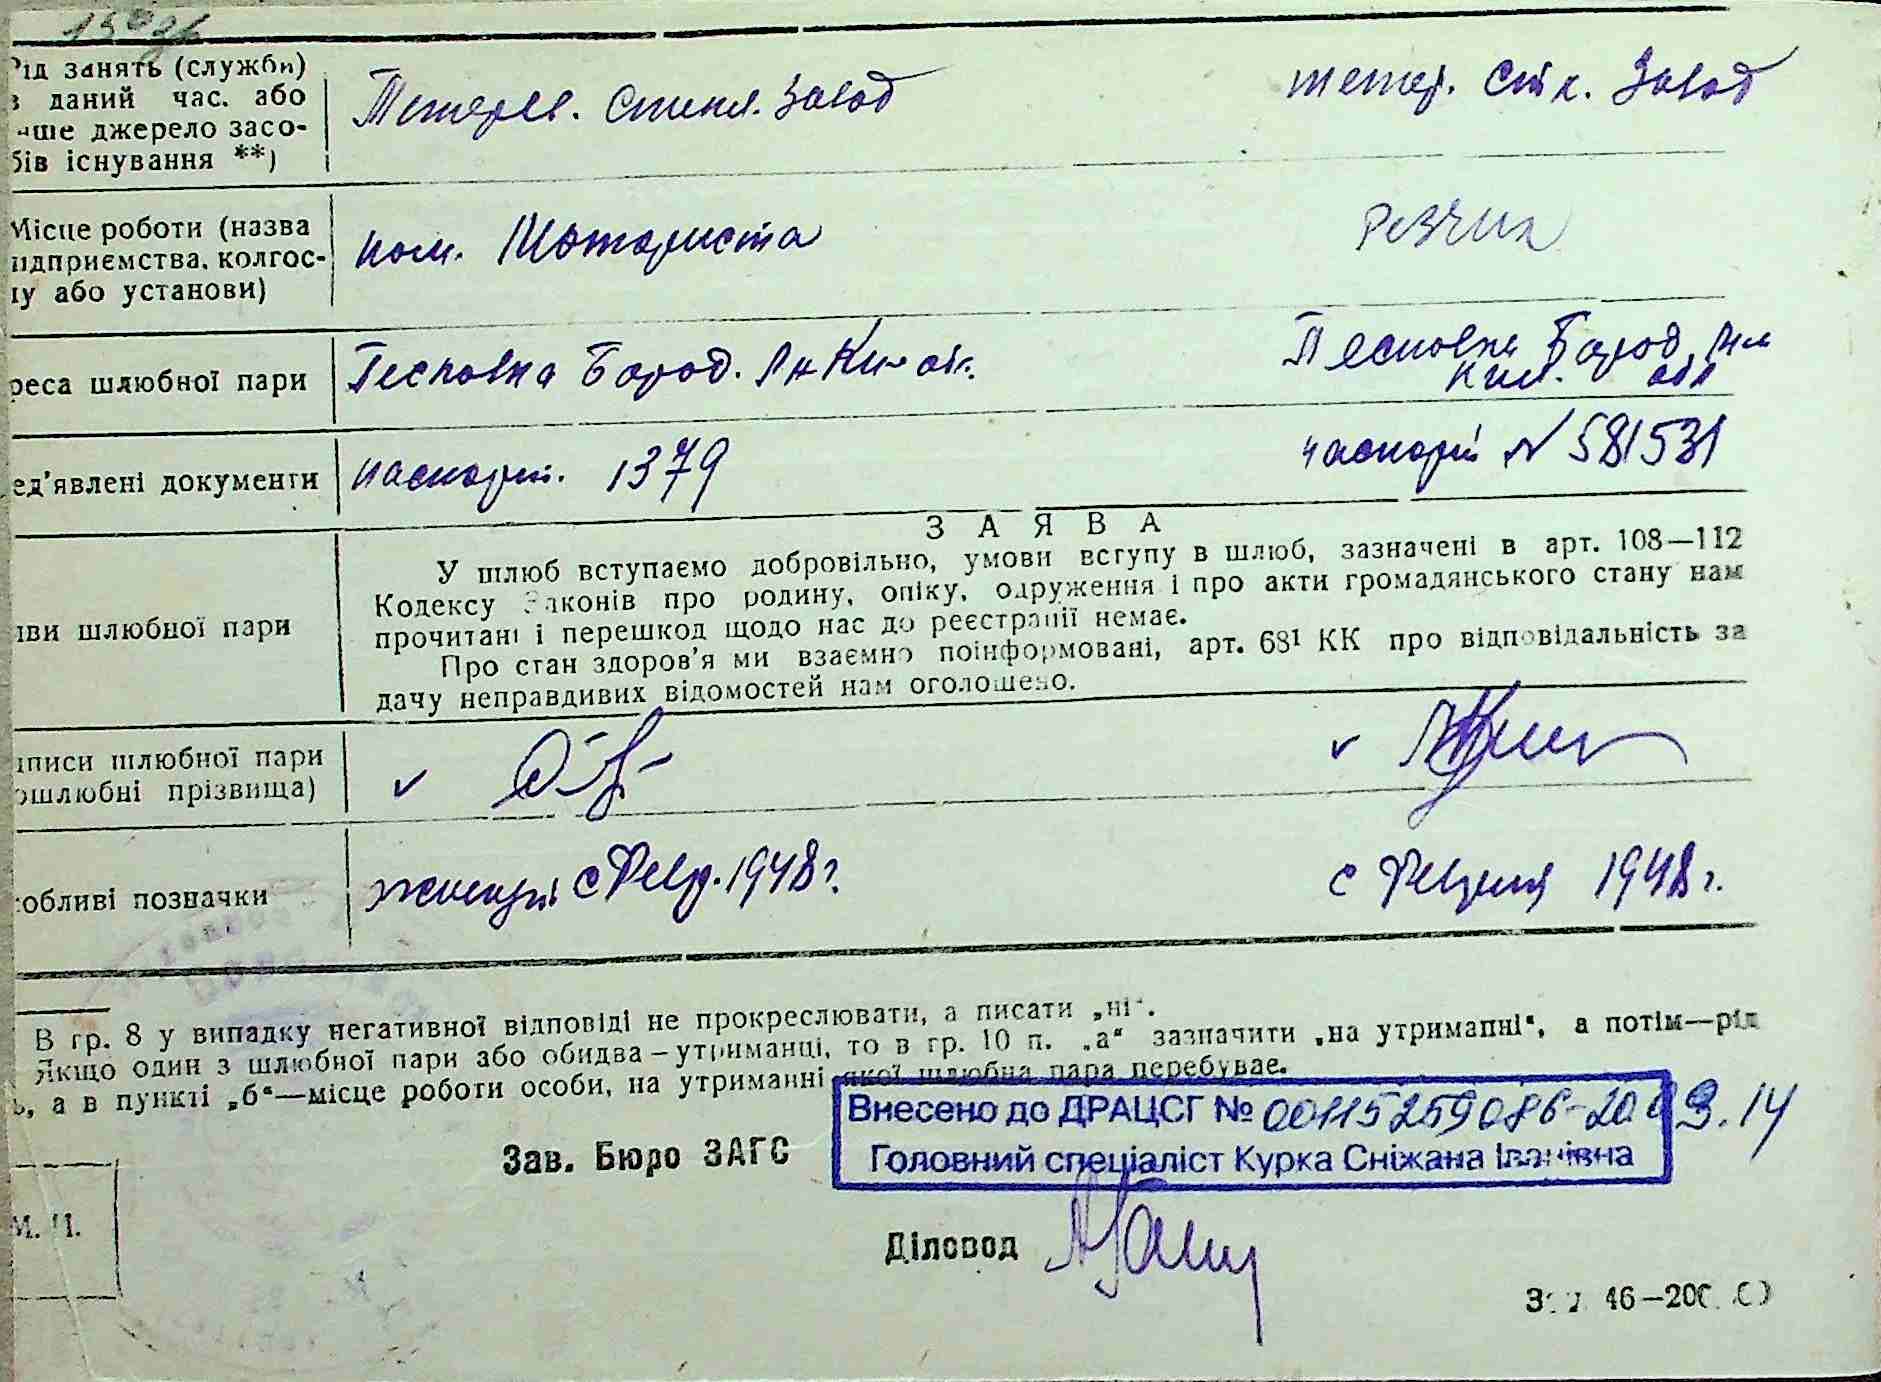 Рід занять (служби)
в даний час. або
інше джерело засо-
бів існування **)
Тетерев. Стекл. Завод
тетер. Стк. Завод
Місце роботи (назва
підприємства, колгос-
пу або установи)
пом. Моториста
Резчик
реса шлюбної пари
Песковка Бород. Рн Ки
Песковка Бород. Рн
Киев. обл
ед'явлені документи
паспорт. 1379
паспорт N 581531
З А Я В А
У шлюб вступаємо добровільно, умови вступу в шлюб, зазначені в арт. 108—112
Кодексу Законів про родину, опіку, одруження і про акти громадянського стану нам
прочитані і перешкод щодо нас до реєстрації немає.
Про стан здоров'я ми взаємно поінформовані, арт. 68¹ КК про відповідальність за
дачу неправдивих відомостей нам оголошено.
яви шлюбної пари
дписи шлюбної пари
ошлюбні прізвища)
собливі позначки
с Февр. 1948 г.
с 1948 г.
В гр. 8 у випадку негативної відповіді не прокреслювати, а писати „ні“.
Якщо один з шлюбної пари або обидва — утриманці, то в гр. 10 п. „а“ зазначити „на утриманні“, а потім—рід
ь, а в пункті „б“—місце роботи особи, на утриманні якої шлюбна пара перебуває.
Внесено до ДРАЦСГ № 00115259086-2009.14
Головний спеціаліст Курка Сніжана Іванівна
Зав. Бюро ЗАГС
М. П.
Діловод